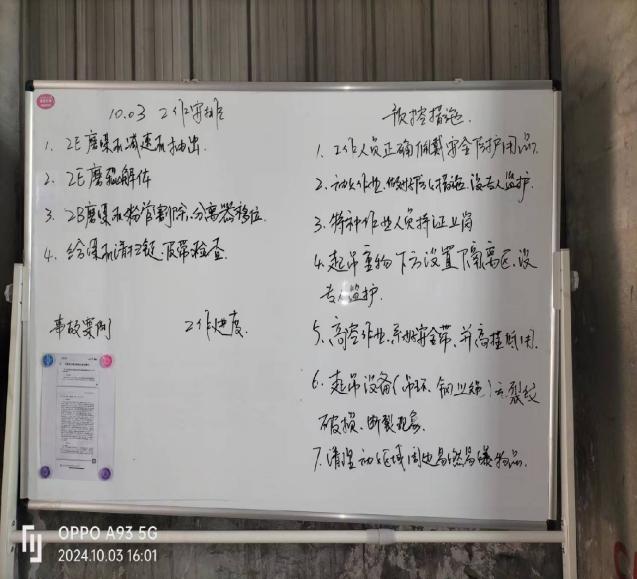 10.03 工作安排
1. 2E磨煤机减速机抽出.
2. 2E磨辊解体
3. 2B磨煤机粉管割除,分离器移位
4. 给煤机清扫链,皮带检查.
事故案例
工作进度.
预控措施.
1. 工作人员正确佩戴安全防护用品.
2. 动火作业,做好防火措施,设专人监护.
3. 特种作业人员持证上岗
4. 起吊重物下方设置隔离区,设
专人监护.
5. 高空作业,系好安全带,并高挂低用.
6. 起吊设备(吊环、钢丝绳)无裂纹
破损、断裂现象.
7. 清理动火区域周边易燃易爆物品.
OPPO A93 5G
2024.10.03 16:01